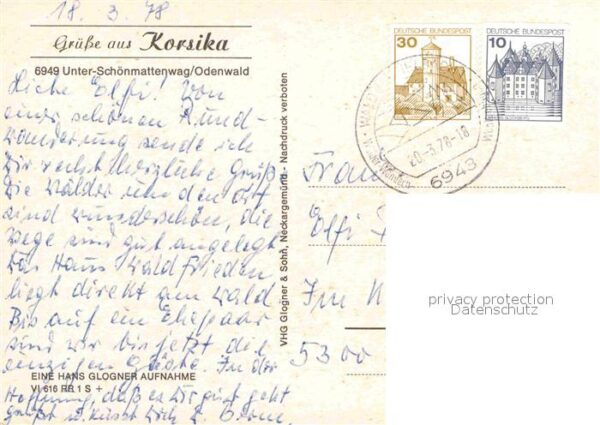 18. 3. 78
Grüße aus Korsika
6949 Unter-Schönmattenwag/Odenwald
Liebe Elfi! Von
einer schönen Rund-
wanderung sende ich
Dir recht herzliche Grüße
Die Wälder rund
sind wunderschön, die
Wege sind gut angelegt
Das Haus Waldfrieden
liegt direkt am Wald
Bis auf ein Ehepaar
sind wir bis jetzt die
einzigen Gäste. In der
Hoffnung, daß es Dir gut geht
grüßt u. küsst Dich
EINE HANS GLOGNER AUFNAHME
VI 616 RR 1 S +
VHG Glogner & Sohn, Neckargemünd - Nachdruck verboten
DEUTSCHE BUNDESPOST
30
DEUTSCHE BUNDESPOST
10
-3.78-18
6943
Frau
Elfi
Im
5300
privacy protection
Datenschutz